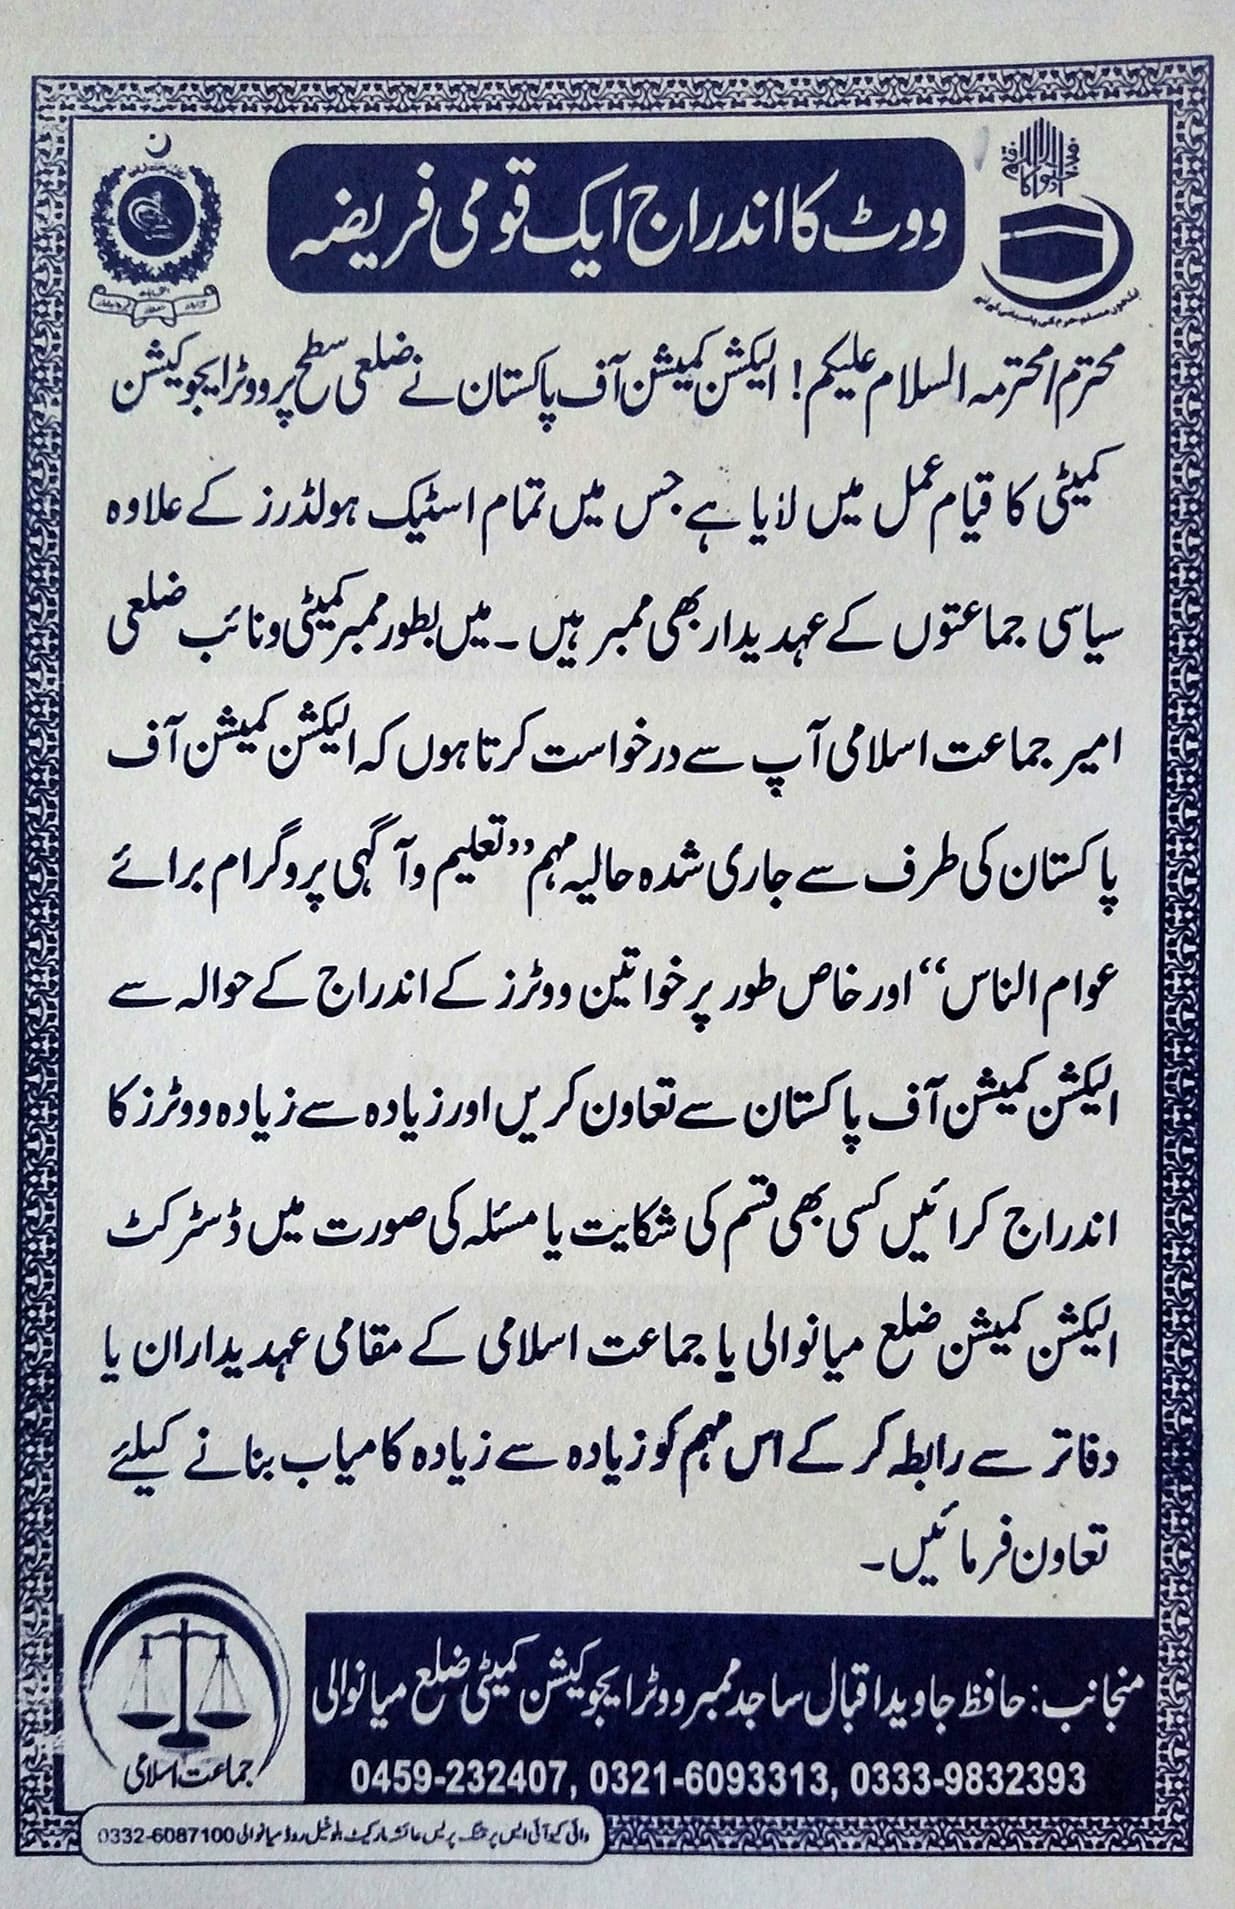 ووٹ کا اندراج ایک قومی فریضہ
محترم/محترمہ السلام علیکم! الیکشن کمیشن آف پاکستان نے ضلعی سطح پر ووٹر ایجوکیشن
کمیٹی کا قیام عمل میں لایا ہے جس میں تمام اسٹیک ہولڈرز کے علاوہ
سیاسی جماعتوں کے عہدیدار بھی ممبر ہیں۔ میں بطور ممبر کمیٹی و نائب ضلعی
امیر جماعت اسلامی آپ سے درخواست کرتا ہوں کہ الیکشن کمیشن آف
پاکستان کی طرف سے جاری شدہ حالیہ مہم ”تعلیم و آگہی پروگرام برائے
عوام الناس“ اور خاص طور پر خواتین ووٹرز کے اندراج کے حوالہ سے
الیکشن کمیشن آف پاکستان سے تعاون کریں اور زیادہ سے زیادہ ووٹرز کا
اندراج کرائیں کسی بھی قسم کی شکایت یا مسئلہ کی صورت میں ڈسٹرکٹ
الیکشن کمیشن ضلع میانوالی یا جماعت اسلامی کے مقامی عہدیداران یا
دفاتر سے رابطہ کر کے اس مہم کو زیادہ سے زیادہ کامیاب بنانے کیلئے
تعاون فرمائیں۔
منجانب: حافظ جاوید اقبال ساجد ممبر ووٹر ایجوکیشن کمیٹی ضلع میانوالی
0459-232407, 0321-6093313, 0333-9832393
جماعت اسلامی
وائی کیو آئی ایس پرنٹنگ پریس عائشہ مارکیٹ بلوخیل روڈ میانوالی 0332-6087100